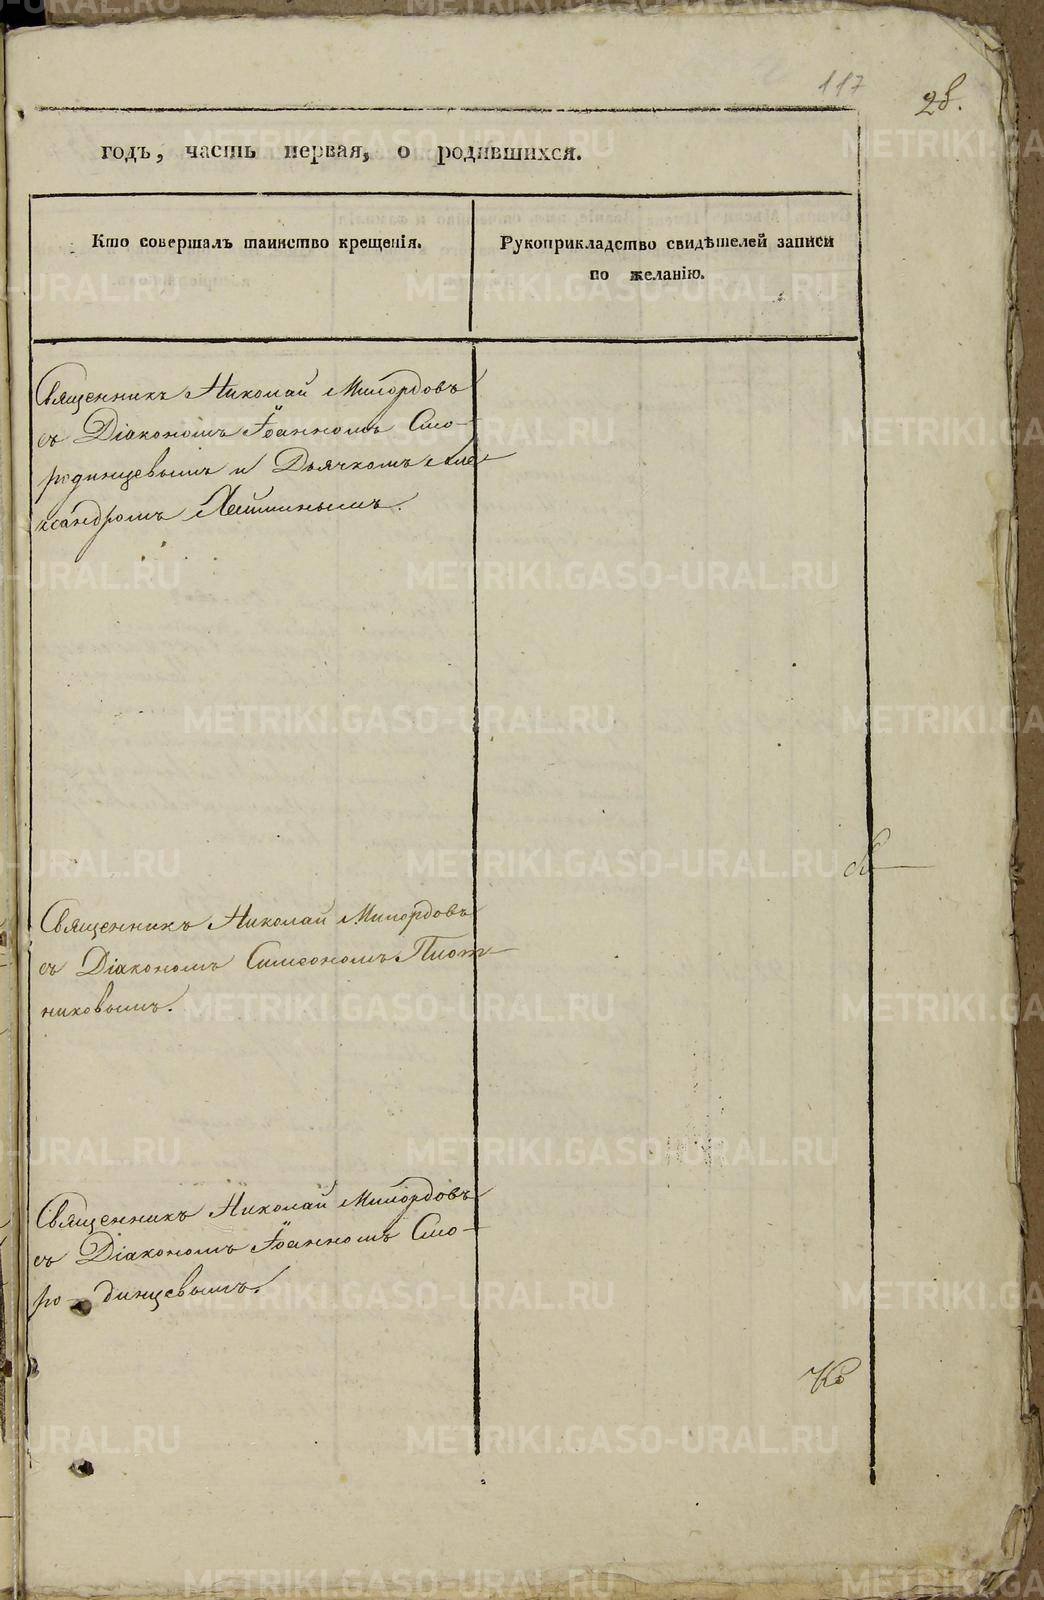 117
28.
годъ, часть первая, о родившихся.
Кто совершалъ таинство крещенія.
Рукоприкладство свидѣтелей записи
по желанію.
Священникъ Николай Милордовъ
съ Діакономъ Іоанномъ Смо-
родинцевымъ и Дьячкомъ Але-
ксандромъ
Священникъ Николай Милордовъ
съ Діакономъ Симеономъ Плот-
никовымъ.
Священникъ Николай Милордовъ
съ Діакономъ Іоанномъ Смо-
ро-динцевымъ.
METRIKI.GASO-URAL.RU